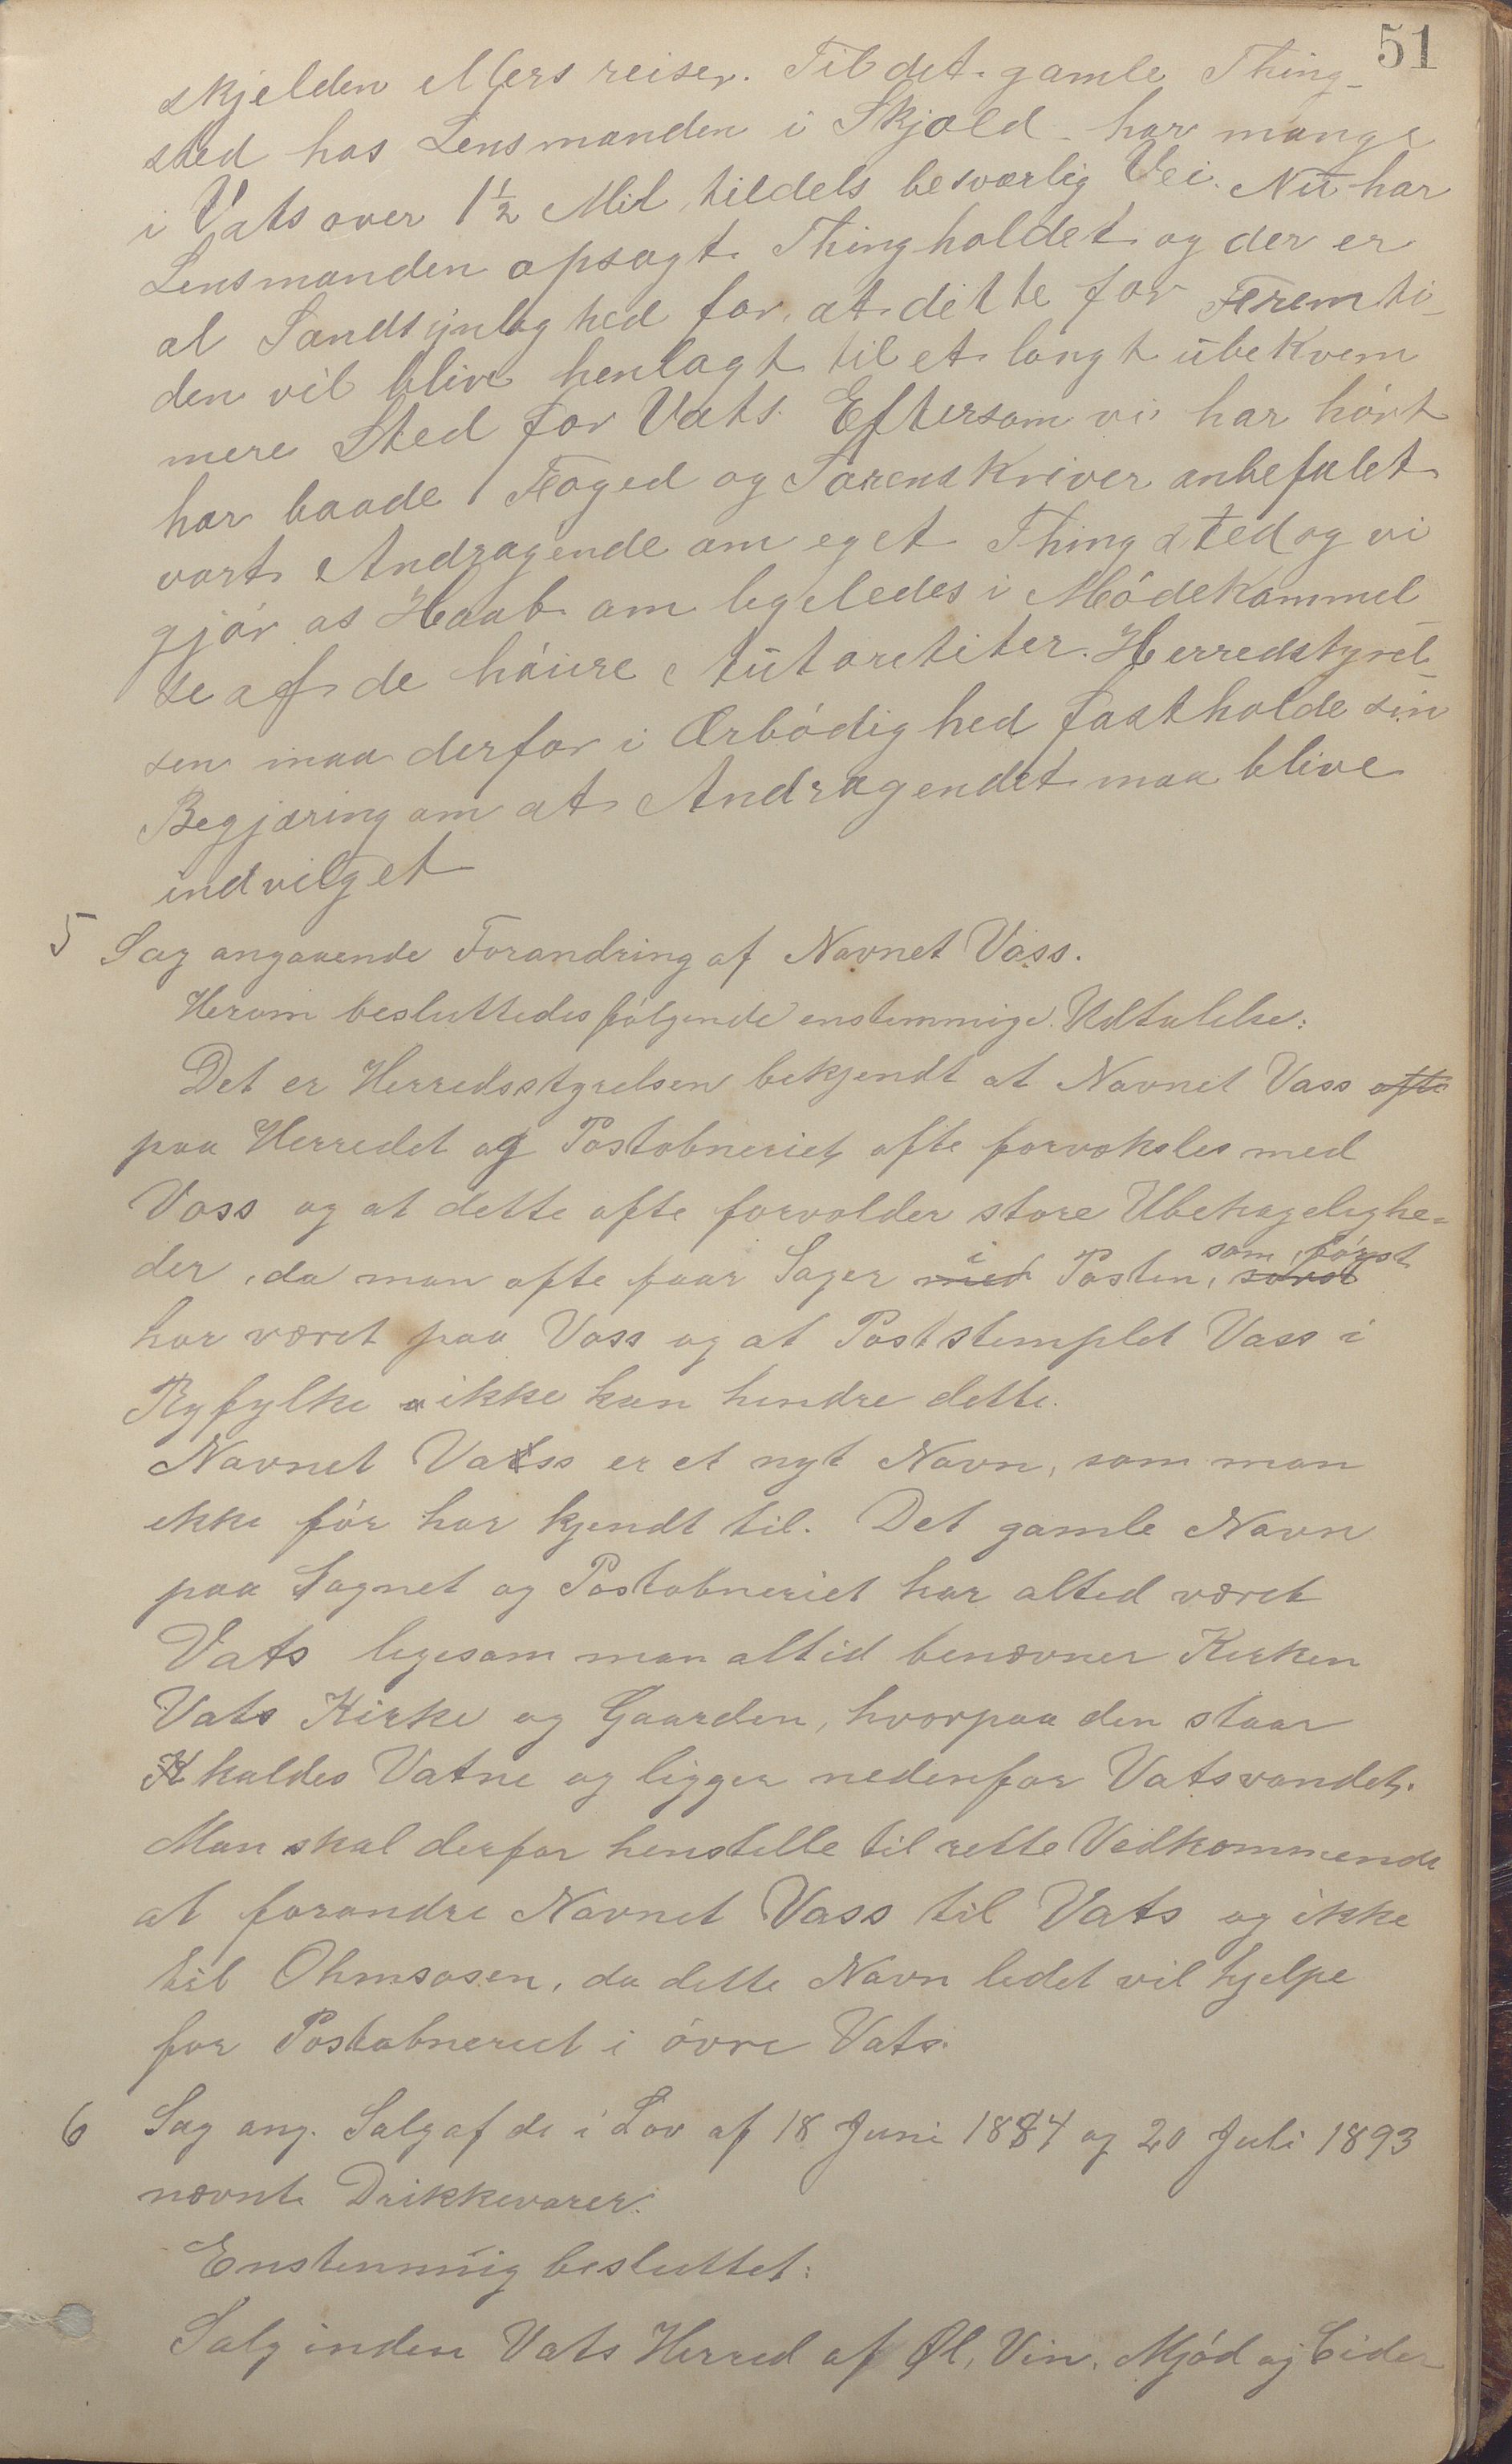 51
skjelden ellers reiser. Til det gamle Thing-
sted hos Lensmanden i Skjold har mange
i Vats over 1½ Mil, tildels besværlig Vei. Nu har
Lensmanden opsagt Thingholdet og der er
al Sandsynlighed for, at dette for Fremti-
den vil blive henlagt til et langt ubekvem
mere Sted for Vats. Eftersom vi har hört
har baade Foged og Sorenskriver anbefalet
vort Andragende om eget Thingsted og vi
gjör os Haab om ligeledes i Mödekommel
se af de höiere Autoriteter. Herredstyrel-
sen maa derfor i Ærbödighed fastholde sin
Begjæring om at Andragendet maa blive
indvilget
5 Sag angaaende Forandring af Navnet Vass.
Herom besluttedes følgende enstemmige Udtalelse:
Det er Herredsstyrelsen bekjendt at Navnet Vass ofte
paa Herredet og Postobneriet ofte forveksles med
Voss og at dette ofte forvolder store Ubehagelighe-
der, da man ofte faar Sager med i Posten, som först
har været paa Voss og at Poststemplet Vass i
Ryfylke ikke kan hendre dette.
Navnet Vass er et nyt Navn, som man
ikke för har kjendt til. Det gamle Navn
paa Sognet og Postobneriet har altid været
Vats ligesom man altid benævner Kirken
Vats Kirke og Gaarden, hvorpaa den staar
kaldes Vatne og ligger nedenfor Vatsvandet.
Man skal derfor henstille til rette Vedkommende
at forandre Navnet Vass til Vats og ikke
til Ohmsosen, da dette Navn ledet vil hjelpe
for Postobneriet i övre Vats.
6 Sag ang. Salg af de i Lov af 18 Juni 1884 og 20 Juli 1893
nævnte Drikkevarer.
Enstemmig besluttet:
Salg inden Vats Herred af Øl, Vin, Mjød og Cider